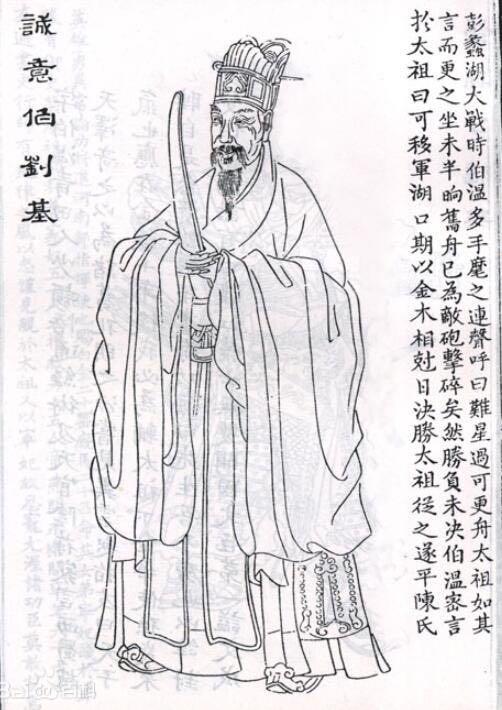 彭蠡湖大戰時伯溫多手麾之連聲呼曰難星過可更舟太祖如其
言而更之坐未半晌舊舟已為敵砲擊碎矣然勝負未决伯溫密言
扵太祖曰可移軍湖口期以金木相尅日決勝太祖從之遂平陳氏
誠意伯劉基
Bai百科